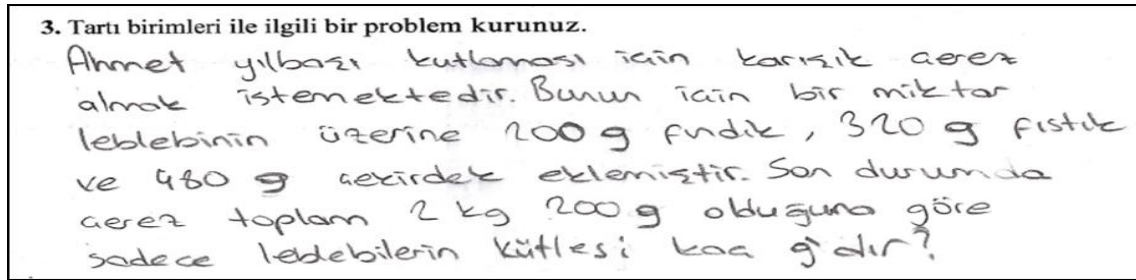 3. Tartı birimleri ile ilgili bir problem kurunuz.
Ahmet yılbaşı kutlaması için karışık çerez
almak istemektedir. Bunun için bir miktar
leblebinin üzerine 200 g fındık, 320 g fıstık
ve 480 g çekirdek eklemiştir. Son durumda
çerez toplam 2 kg 200 g olduğuna göre
sadece leblebilerin kütlesi kaç g'dır?